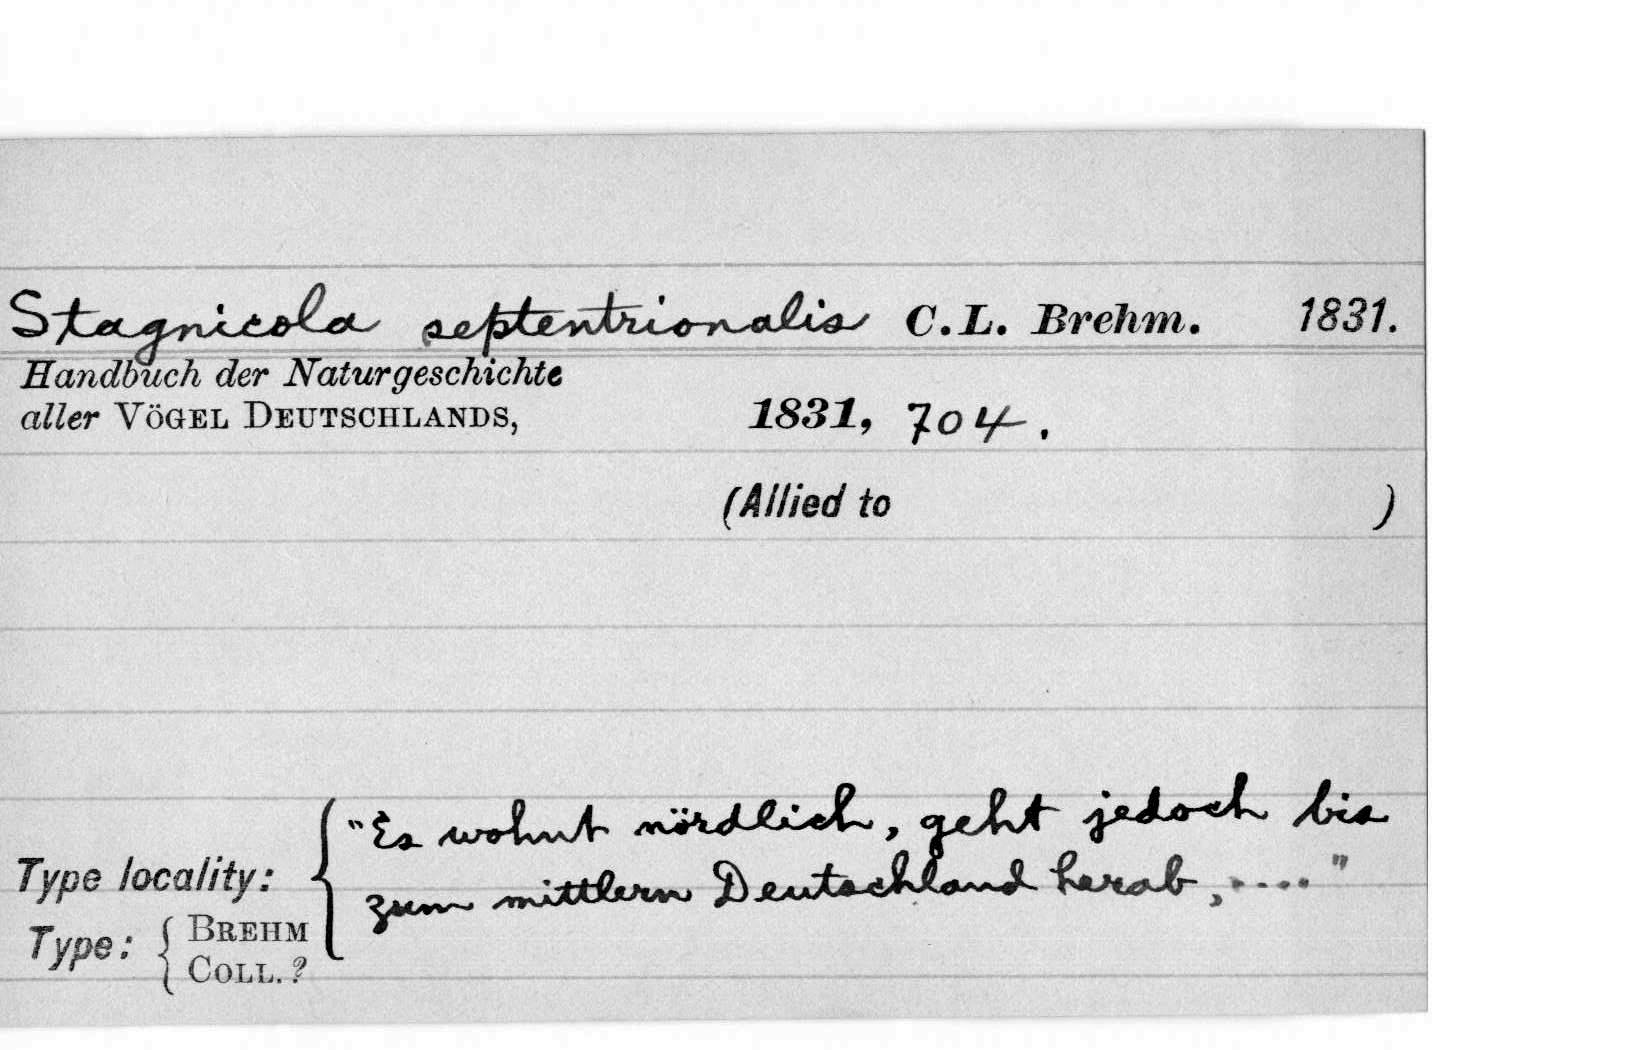 Stagnicola septentrionalis C. L. Brehm. 1831.
Handbuch der Naturgeschichte
aller VÖGEL DEUTSCHLANDS, 1831, 704.
(Allied to )
"Es wohnt nördlich, geht jedoch bis
Type locality: zum mittlern Deutschland herab, ...."
Type: BREHM
COLL. ?